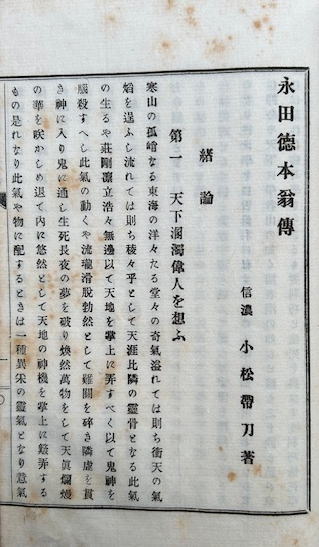 永田德本翁傳
信濃 小松帶刀著
緒論
第一 天下溷濁偉人を想ふ
寒山の孤峭なる東海の洋々たる堂々の奇氣溢れては則ち衝天の氣
焰を逞ふし流れては則ち稜々乎として天涯比隣の靈骨となる此氣
の生るや莊剛凛立浩々無邊以て天地を掌上に弄すべく以て鬼神を
腦殺すへし此氣の動くや流瓏滑脱勃然として難關を碎き隣虛を貫
き神に入り鬼に通し生死長夜の夢を破り煥然萬物をして天眞爛熳
の華を咲かしめ退て內に悠然として天地の神機を掌上に弄する
もの是れなり此氣や物に配するときは一種異采の靈氣となり意氣